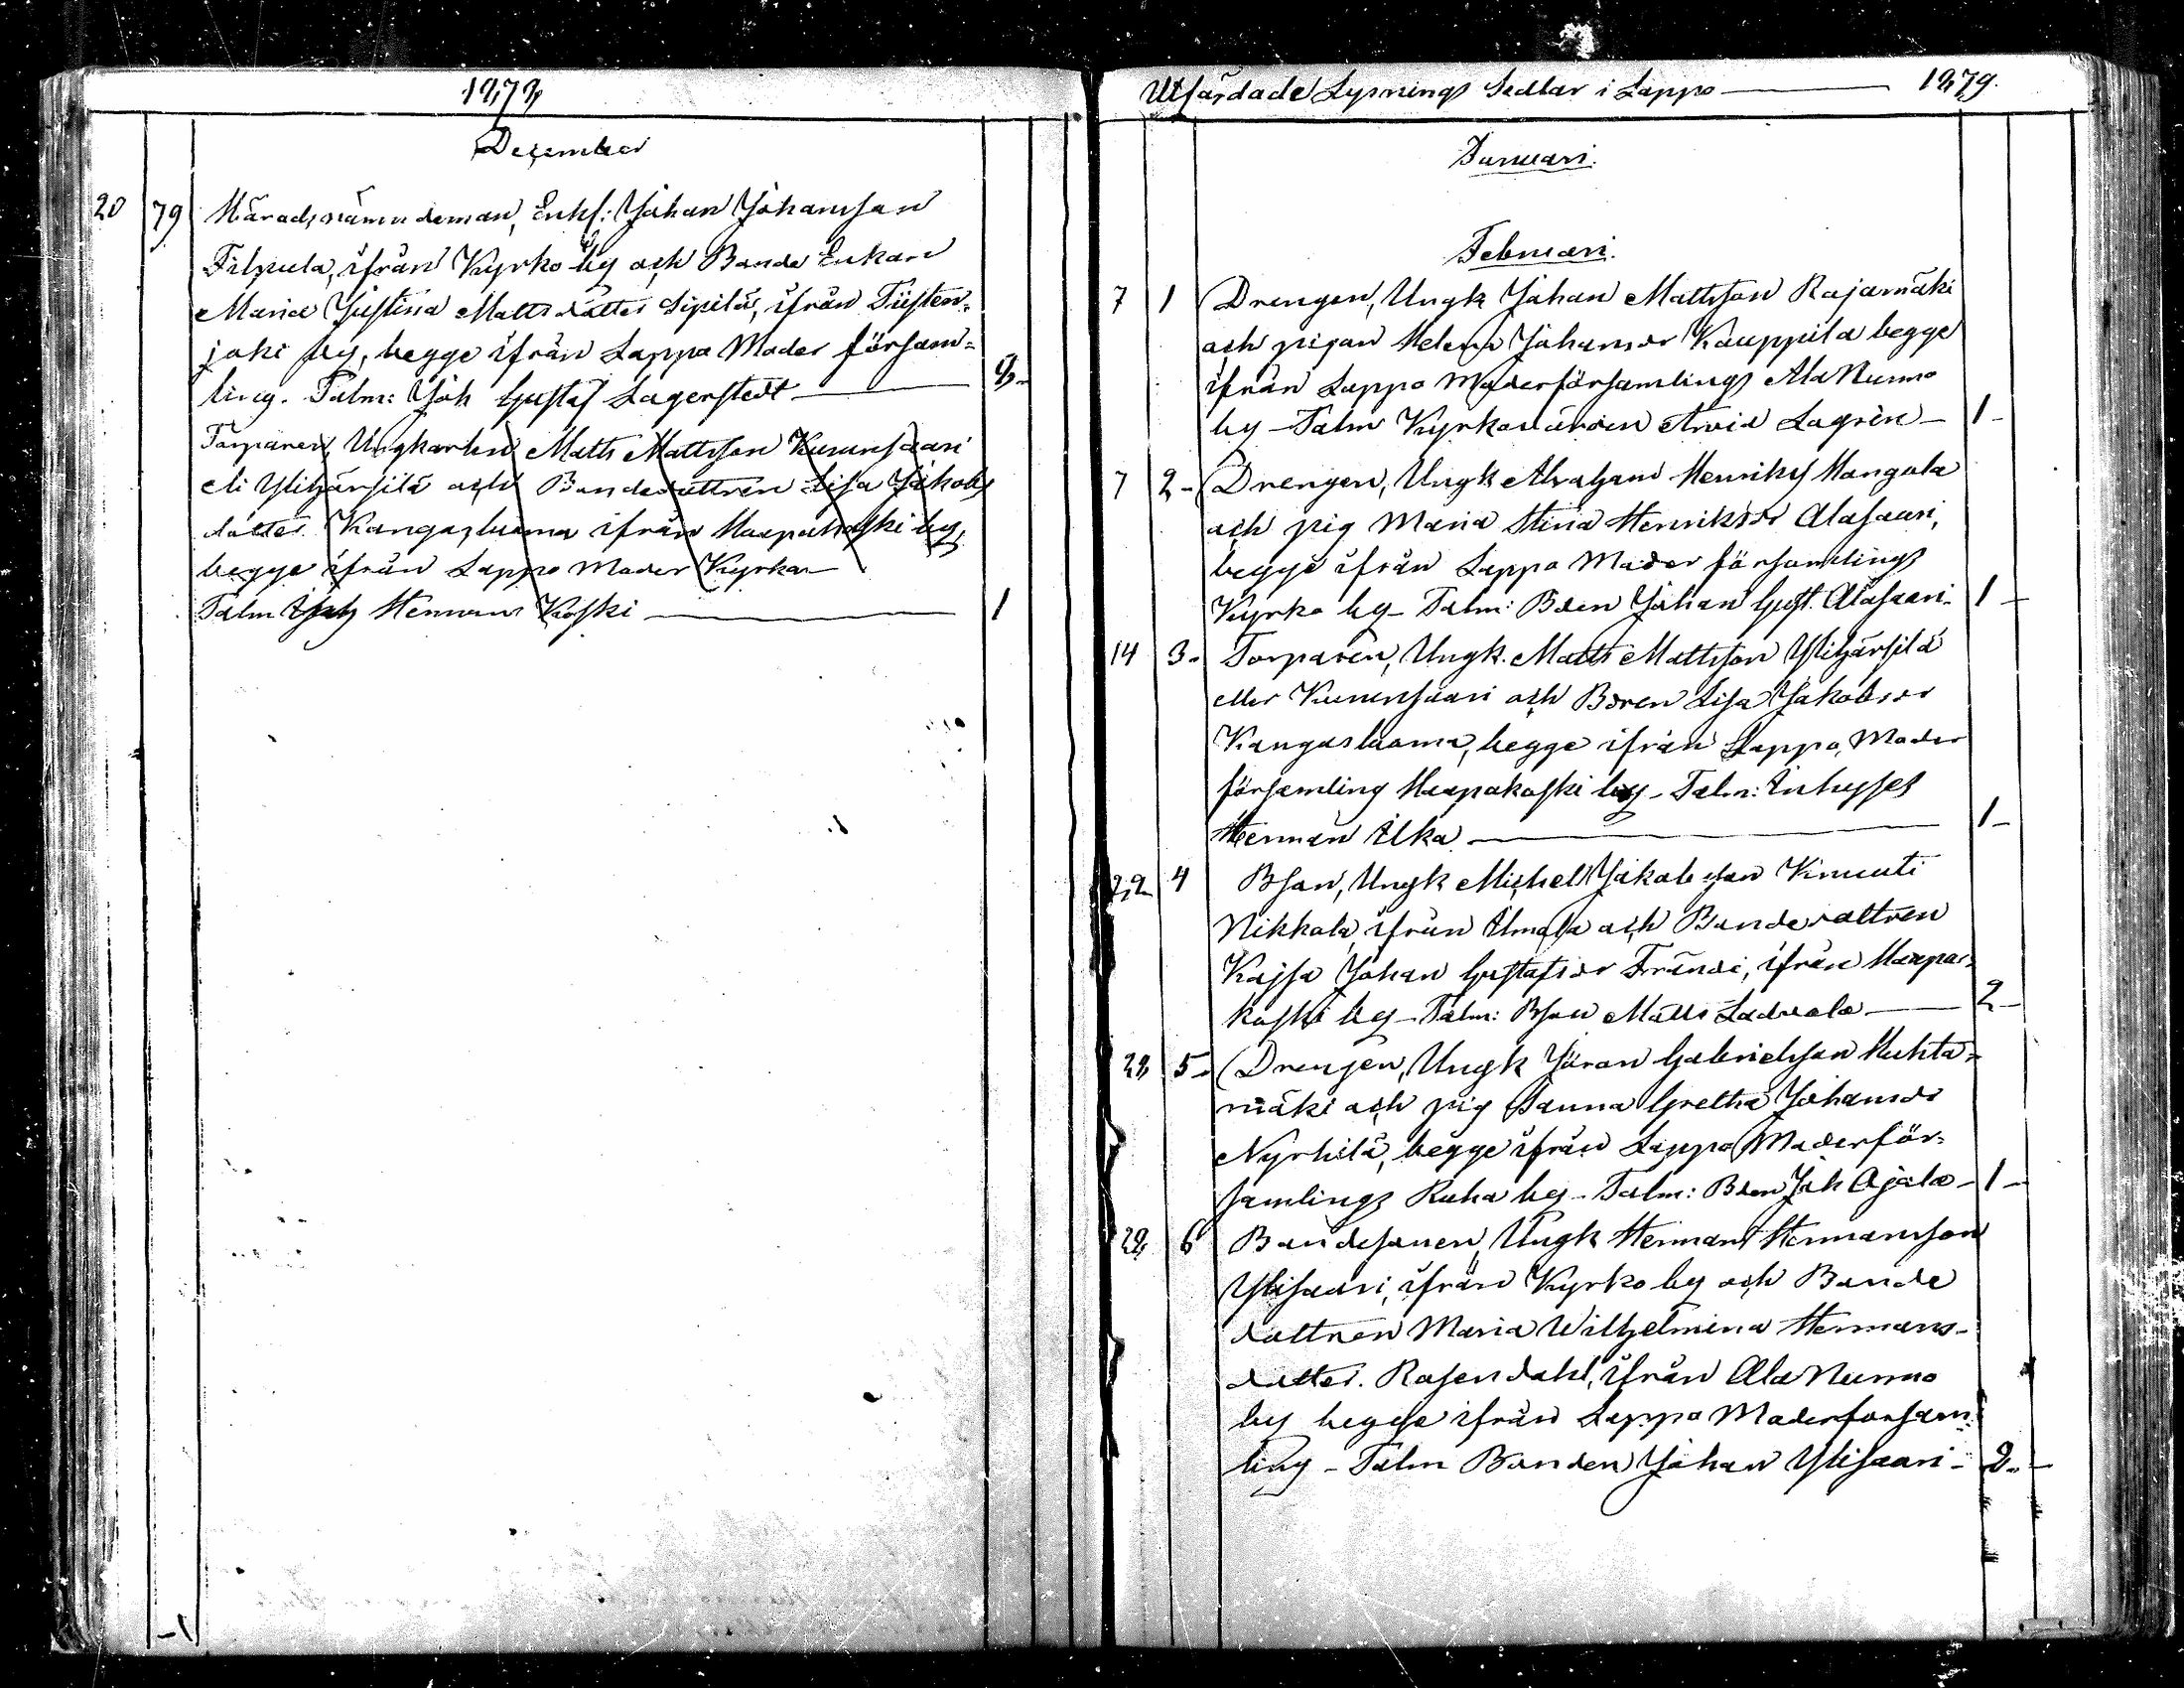 1878
December
20 79 Häradsnämndeman, Enkl: Johan Johansson
Filpula, ifrån Kyrko by och Bonde Enkan
Maria Justina Mattsdotter Sipilä, ifrån Tiisten-
joki by, begge ifrån Lappo Moder försam-
ling. Talm: Joh Gustaf Lagerstedt 2-
Torparen, Ungkarlen Matts Mattsson Kuusisaari
eli Ylihärsilä och Bondedottren Lisa Jakobs
dotter Kangasluoma ifrån Haapakoski by,
begge ifrån Lappo Moder Kyrka
Talm Herman Koski 1
-1
Utfärdade Lysnings Sedlar i Lappo 1879.
Januari.
Februari.
7 1 Drengen, Ungk Johan Mattsson Rajamäki
och pigan Helena Johansdr Kauppila begge
ifrån Lappo Moderförsamlings Ala Nurmo
by - Talm Kyrkovärden Arvid Lagrèn - 1-
7 2- Drengen, Ungk Abraham Henriks Hangala
och pig Maria Stina Henriksdr Alasaari,
begge ifrån Lappo Moder församlings
Kyrko by - Talm: Bden Johan Gust. Alasaari- 1-
14 3- Torparen, Ungk. Matts Mattsson Ylihärsilä
eller Kuusisaari och Bdren Lisa Jakobsdr
Kangasluoma, begge ifrån Lappo, Moder
församling Haapakoski by - Talm: Inhyses
Herman Ilka 1-
22 4 Bson, Ungk Michel Jakobsson Kimuti
Nikkola, ifrån Ilmola och Bondedottren
Kajsa Johan Gustafsdr Frändi, ifrån Haapa-
koski by - Talm: Bson Matts Laduala 2-
28 5- Drengen, Ungk Jöran Gabrielsson Huhta-
mäki och pig Sanna Gretha Johansdr
Nyrhilä, begge ifrån Lappo Moderför-
samlings Ruha by - Talm: Bden Joh Ojala - 1-
28 6 Bondesonen, Ungk Herman Hermansson
Ylisaari, ifrån Kyrko by och Bonde
dottren Maria Wilhelmina Hermans-
dotter. Rosendahl, ifrån Ala Nurmo
by begge ifrån Lappo Moderförsam-
ling - Talm Bonden Johan Ylisaari - 2-